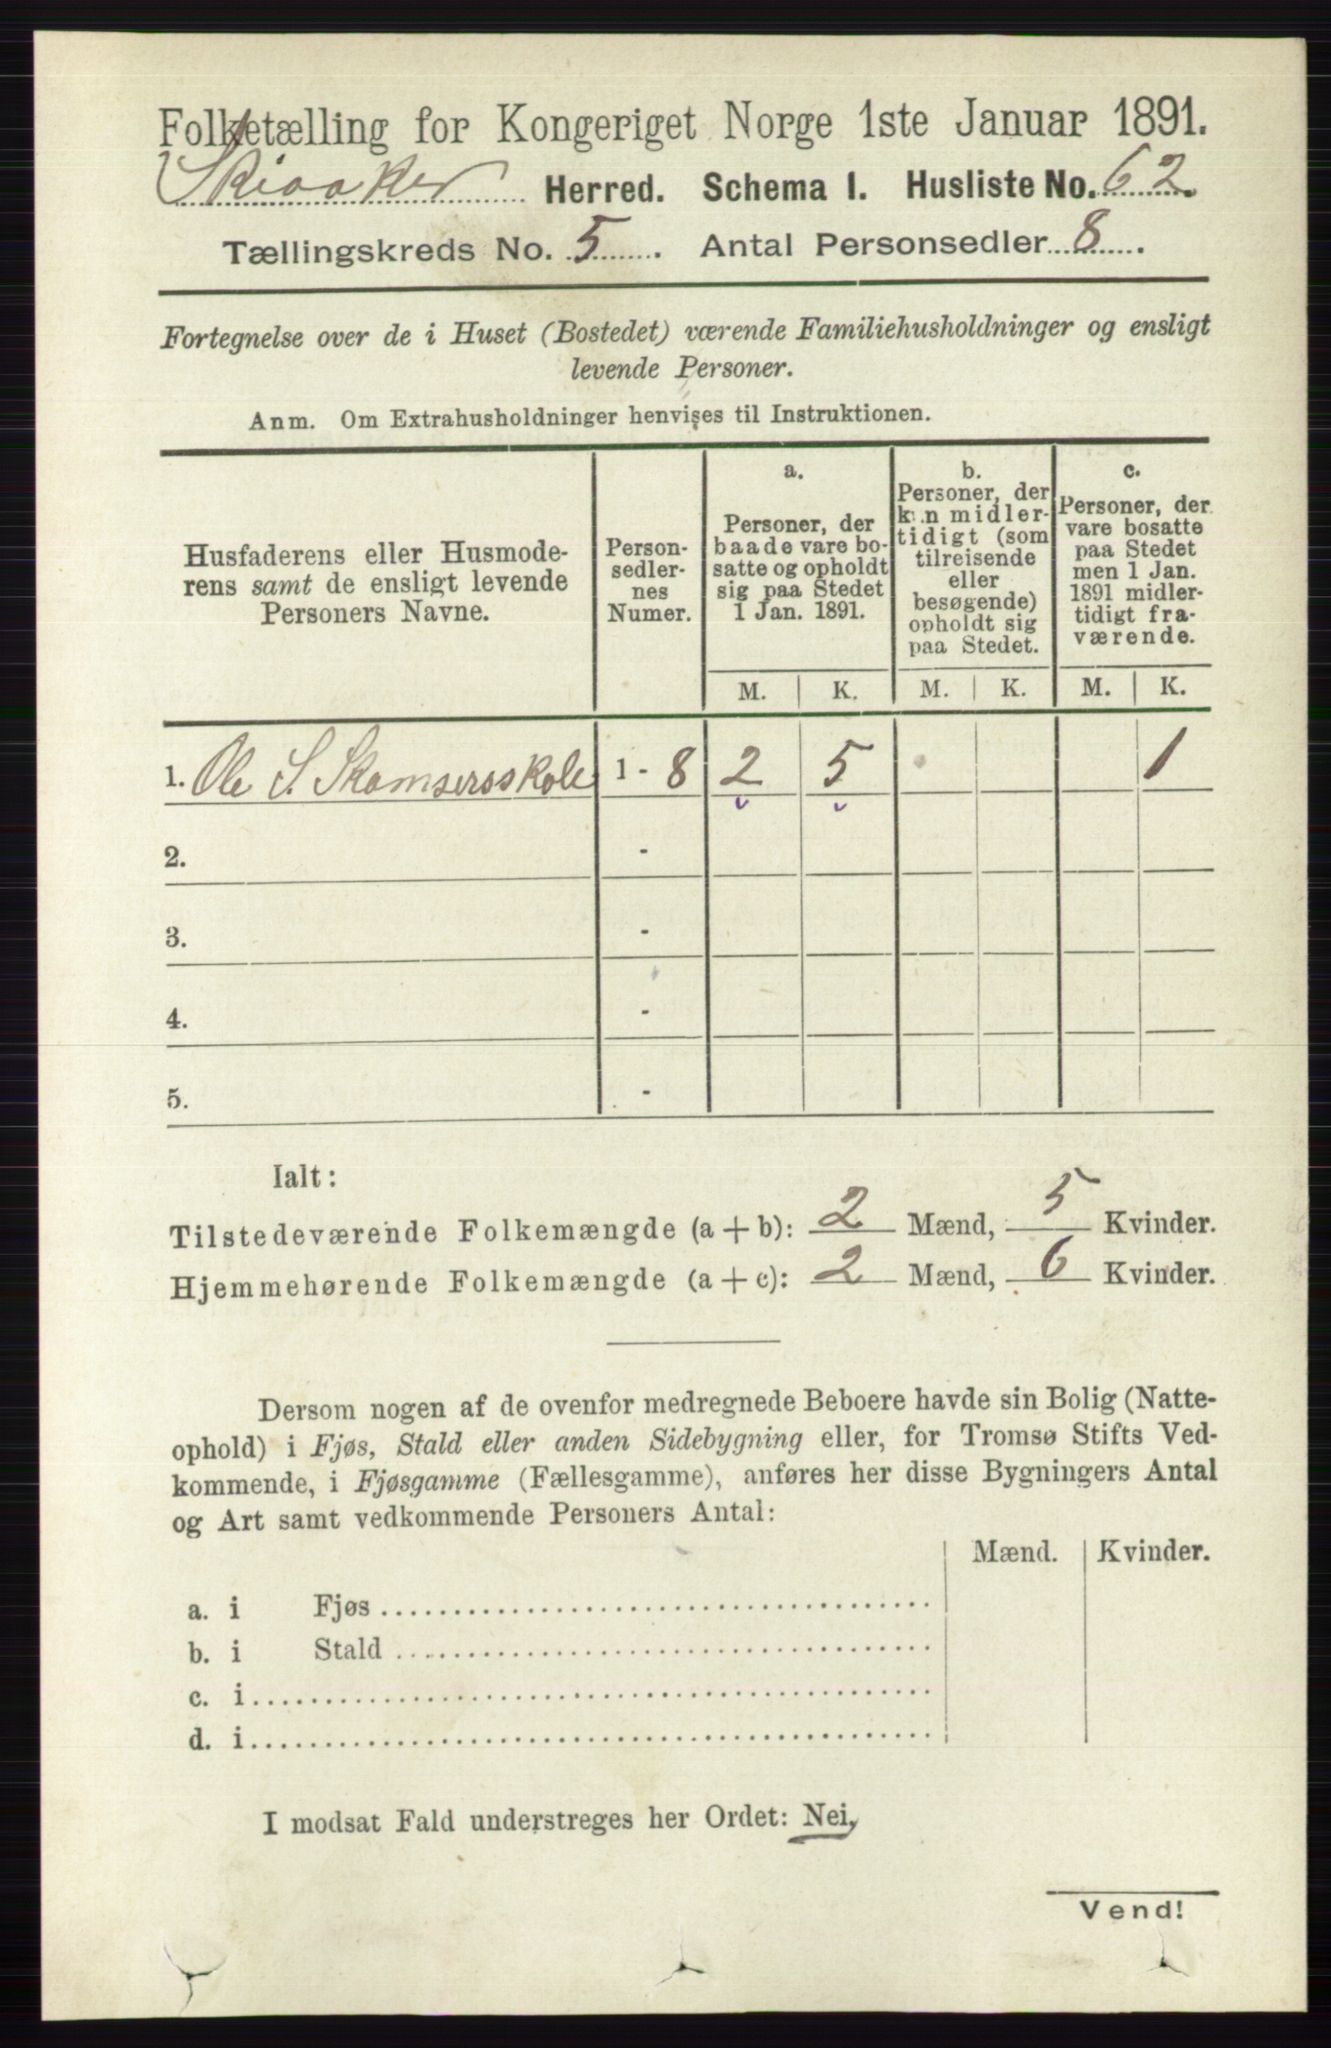 Folketælling for Kongeriget Norge 1ste Januar 1891.
Skiaaker Herred. Schema I. Husliste No. 62.
Tællingskreds No. 5. Antal Personsedler 8.
Fortegnelse over de i Huset (Bostedet) værende Familiehusholdninger og ensligt
levende Personer.
Anm. Om Extrahusholdninger henvises til Instruktionen.
Husfaderens eller Husmode-
rens samt de ensligt levende
Personers Navne.
Person-
sedler-
nes
Numer.
a.
Personer, der
baade vare bo-
satte og opholdt
sig paa Stedet
1 Jan. 1891.
b.
Personer, der
kun midler-
tidigt (som
tilreisende
eller
besøgende)
opholdt sig
paa Stedet.
c.
Personer, der
vare bosatte
paa Stedet
men 1 Jan.
1891 midler-
tidigt fra-
værende.
M. K. M. K. M. K.
1. Ole S. Skamsersskole 1 - 8 2 5 1
2. -
3. -
4. -
5. -
Ialt:
Tilstedeværende Folkemængde (a + b): 2 Mænd, 5 Kvinder.
Hjemmehørende Folkemængde (a + c): 2 Mænd, 6 Kvinder.
Dersom nogen af de ovenfor medregnede Beboere havde sin Bolig (Natte-
ophold) i Fjøs, Stald eller anden Sidebygning eller, for Tromsø Stifts Ved-
kommende, i Fjøsgamme (Fællesgamme), anføres her disse Bygningers Antal
og Art samt vedkommende Personers Antal:
Mænd. Kvinder.
a. i Fjøs
b. i Stald
c. i
d. i
I modsat Fald understreges her Ordet: Nei,
Vend!